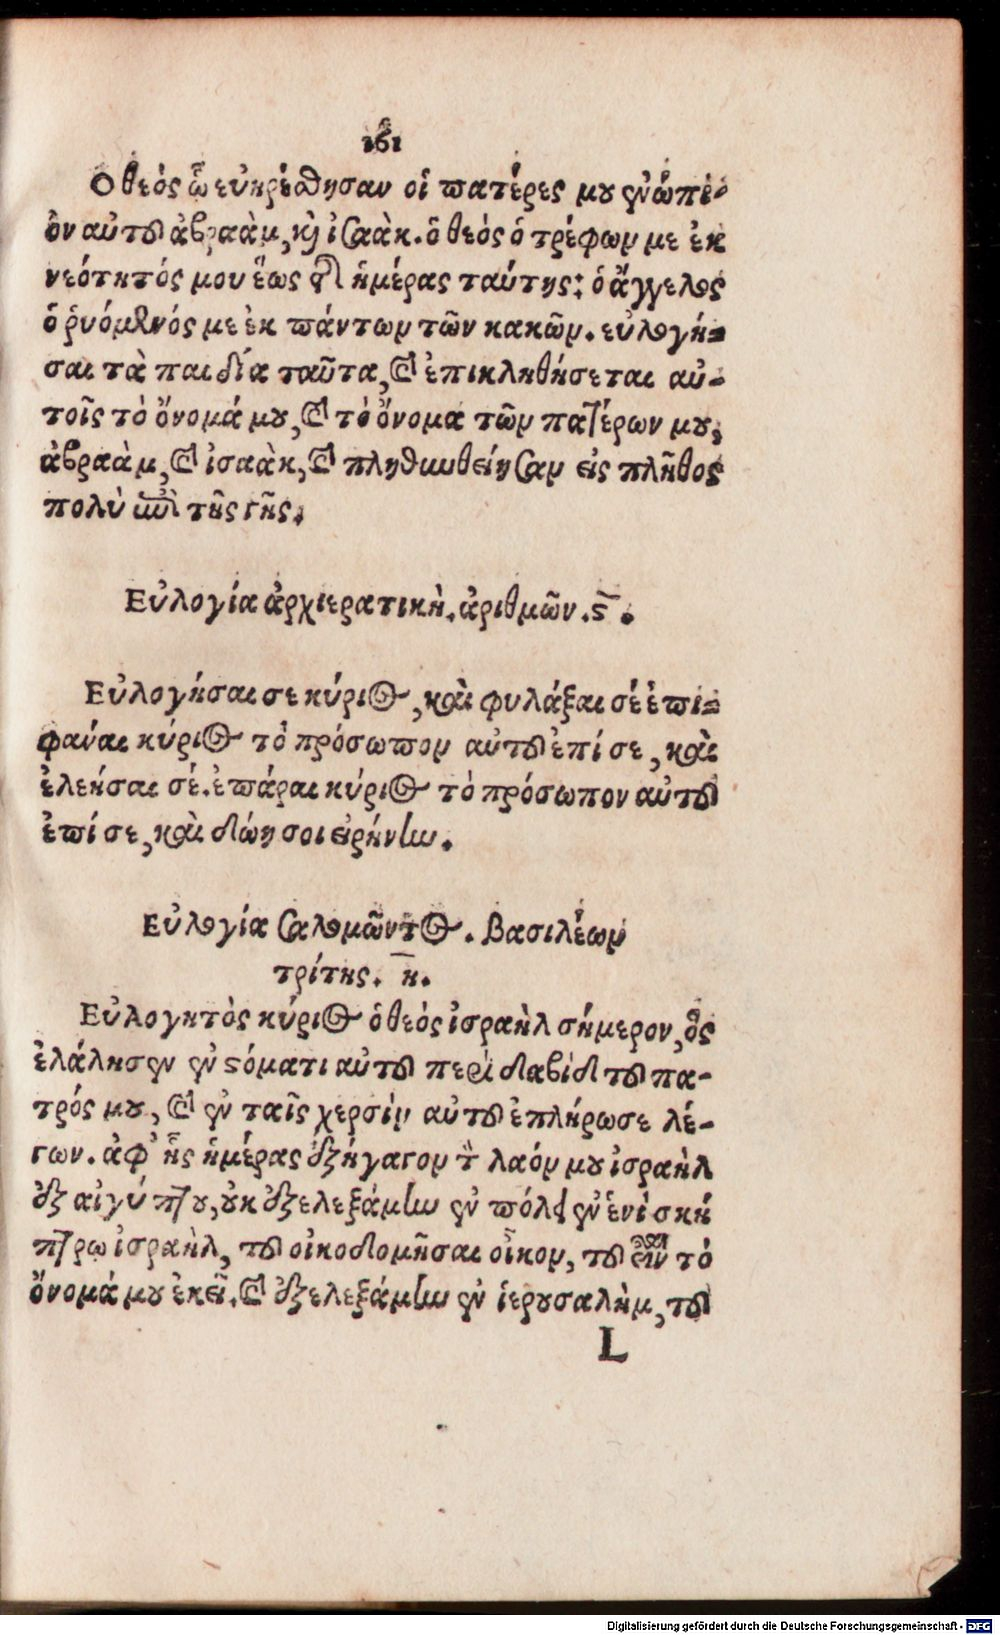 161
Ὁ θεός ᾧ εὐηρέσθησαν οἱ πατέρες μου ἐνώπι-
ον αὐτοῦ ἀβραὰμ, καὶ ἰσαὰκ. ὁ θεός ὁ τρέφων με ἐκ
νεότητός μου ἕως τῆς ἡμέρας ταύτης: ὁ ἄγγελος
ὁ ῥυόμενός με ἐκ πάντων τῶν κακῶν. εὐλογή-
σαι τὰ παιδία ταῦτα, καὶ ἐπικληθήσεται αὐ-
τοῖς τὸ ὄνομά μου, καὶ τὸ ὄνομα τῶν πατέρων μου,
ἀβραὰμ, καὶ ἰσαὰκ, καὶ πληθυνθείησαν εἰς πλῆθος
πολὺ ἐπὶ τῆς γῆς.
Εὐλογία ἀρχιερατικὴ. ἀριθμῶν. ϛ.
Εὐλογήσαι σε κύριος, καὶ φυλάξαι σέ ἐπι-
φαναι κύριος τὸ πρόσωπον αὐτοῦ ἐπί σε, καὶ
ἐλεήσαι σέ. ἐπάραι κύριος τὸ πρόσωπον αὐτοῦ
ἐπί σε, καὶ δώη σοι εἰρήνην.
Εὐλογία σαλομῶντος. βασιλέων
τρίτης. η.
Εὐλογητὸς κύριος ὁ θεός ἰσραὴλ σήμερον, ὃς
ἐλάλησεν ἐν στόματι αὐτοῦ περὶ δαβὶδ τοῦ πα-
τρός μου, καὶ ἐν ταῖς χερσίν αὐτοῦ ἐπλήρωσε λέ-
γων. ἀφ’ ἧς ἡμέρας ἐξήγαγον τὸν λαόν μου ἰσραὴλ
ἐξ αἰγύπτου, οὐκ ἐξελεξάμην ἐν πόλει ἐν ἑνὶ σκή
πτρῳ ἰσραὴλ, τοῦ οἰκοδομῆσαι οἶκον, τοῦ εἶναι τὸ
ὄνομά μου ἐκεῖ. καὶ ἐξελεξάμην ἐν ἱερουσαλὴμ, τοῦ
L
Digitalisierung gefördert durch die Deutsche Forschungsgemeinschaft - DFG